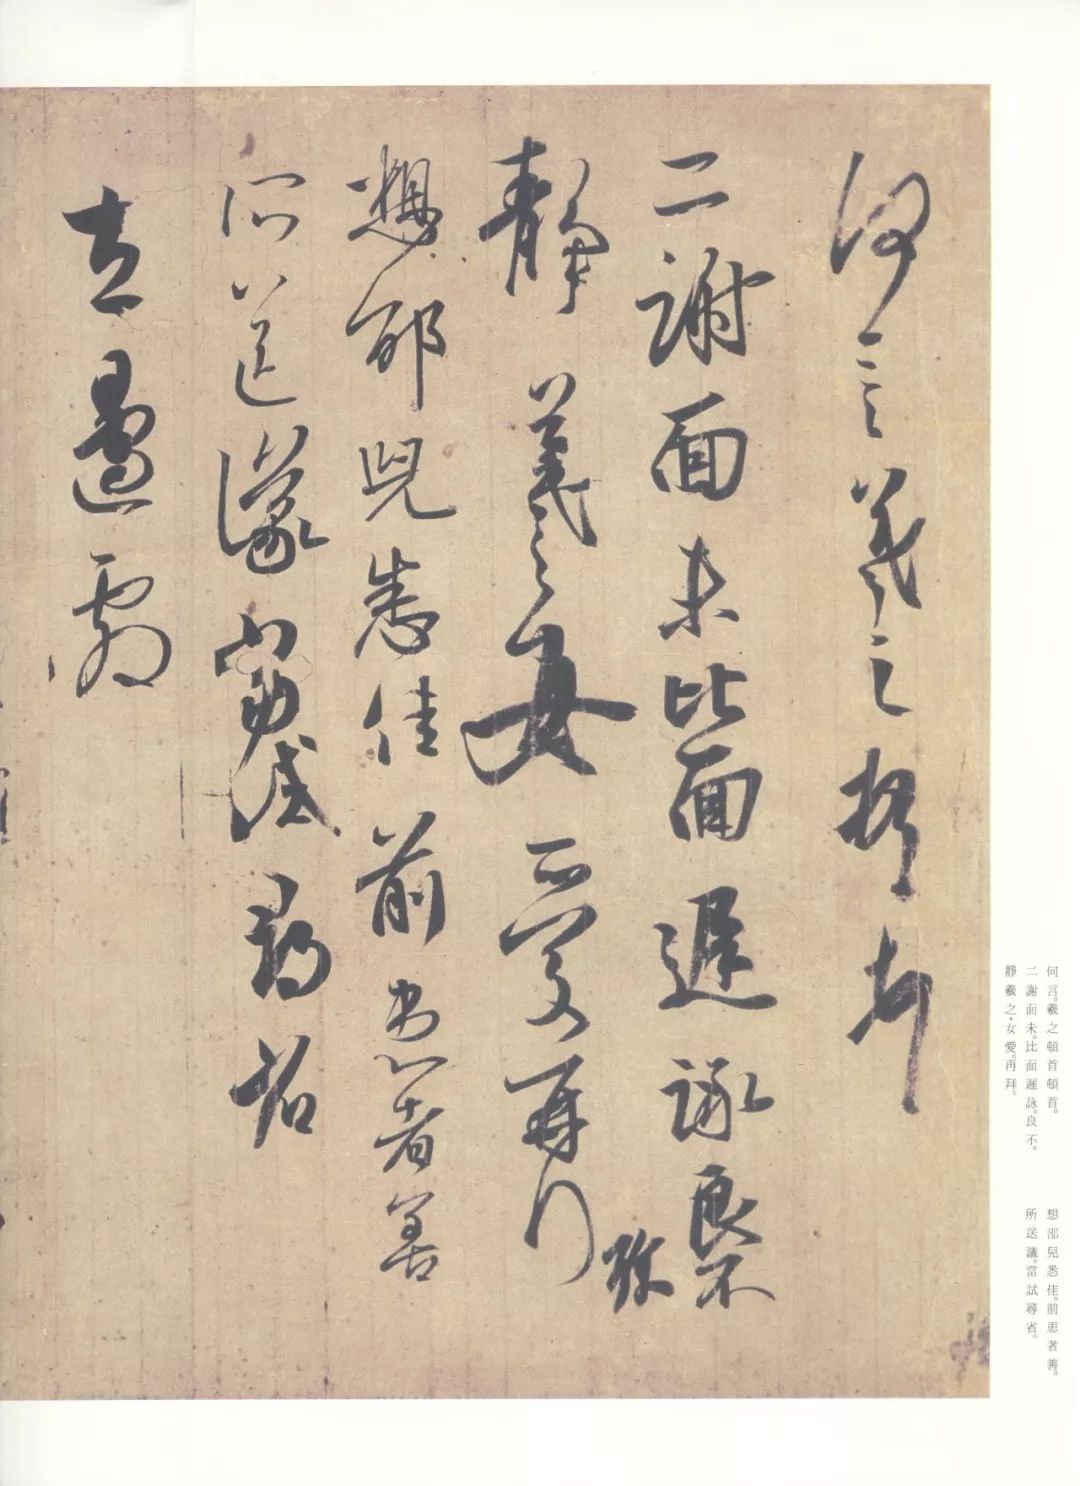 何言羲之頓首頓首
二謝面未比面遲詠良不
靜羲之女愛再拜
想邵兒悉佳前患者善
所送議當試尋省
左邊劇
何言。羲之頓首頓首。
二謝面未。比面遲詠。良不。
靜羲之。女愛。再拜。
想邵兒悉佳。前患者善。
所送議。當試尋省。